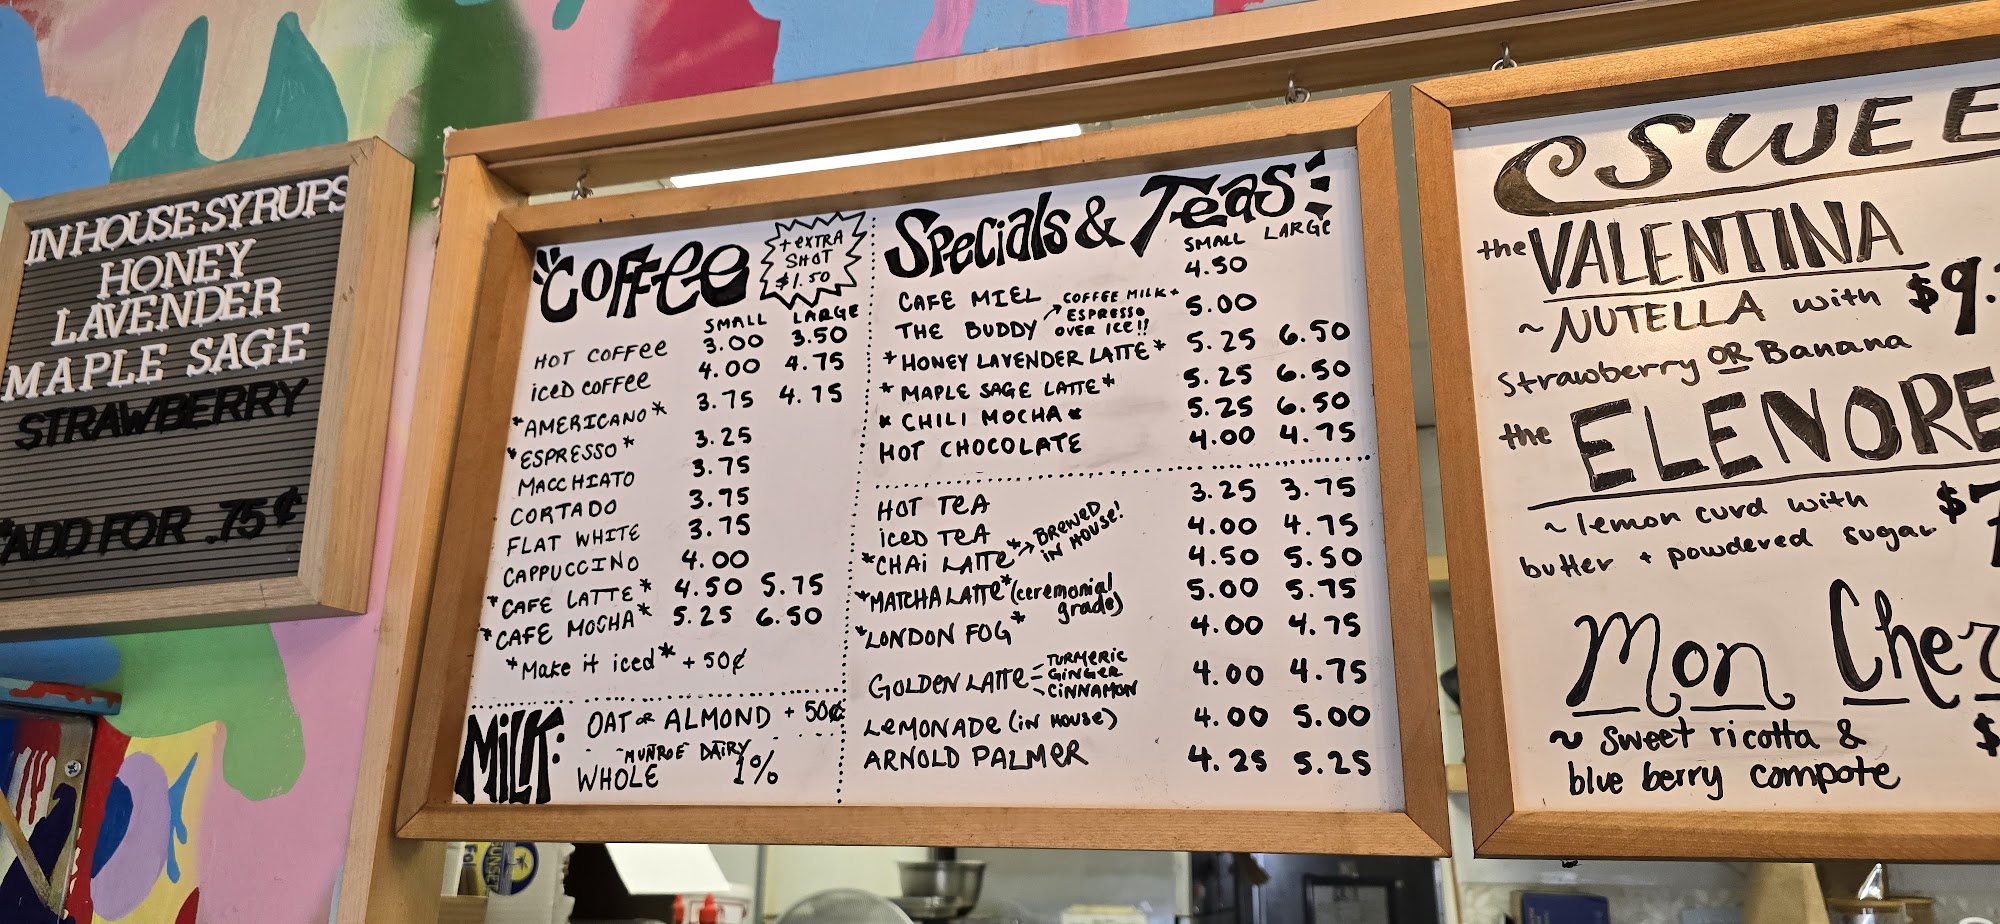 IN HOUSE SYRUPS
HONEY
LAVENDER
MAPLE SAGE
STRAWBERRY
*ADD FOR .75¢
COFFEE
+ EXTRA
SHOT
$1.50
SMALL LARGE
HOT COFFEE 3.00 3.50
ICED COFFEE 4.00 4.75
*AMERICANO* 3.75 4.75
*ESPRESSO* 3.25
MACCHIATO 3.75
CORTADO 3.75
FLAT WHITE 3.75
CAPPUCCINO 4.00
*CAFE LATTE* 4.50 5.75
*CAFE MOCHA* 5.25 6.50
*Make it iced* + 50¢
MILK:
OAT OR ALMOND + 50¢
~MUNROE DAIRY~
WHOLE 1%
SPECIALS & TEAS
SMALL LARGE
CAFE MIEL 4.50
THE BUDDY 5.00
COFFEE MILK +
ESPRESSO
OVER ICE!!
*HONEY LAVENDER LATTE* 5.25 6.50
*MAPLE SAGE LATTE* 5.25 6.50
*CHILI MOCHA* 5.25 6.50
HOT CHOCOLATE 4.00 4.75
HOT TEA 3.25 3.75
ICED TEA 4.00 4.75
*CHAI LATTE* 4.50 5.50
BREWED
IN HOUSE!
*MATCHA LATTE* (ceremonial 5.00 5.75
grade)
*LONDON FOG* 4.00 4.75
GOLDEN LATTE 4.00 4.75
TURMERIC
GINGER
CINNAMON
LEMONADE (IN HOUSE) 4.00 5.00
ARNOLD PALMER 4.25 5.25
SWEE
the VALENTINA
~ NUTELLA with $9.
Strawberry OR Banana
the ELENORE
~ lemon curd with $7
butter + powdered sugar
Mon Cher
~ sweet ricotta & $
blue berry compote